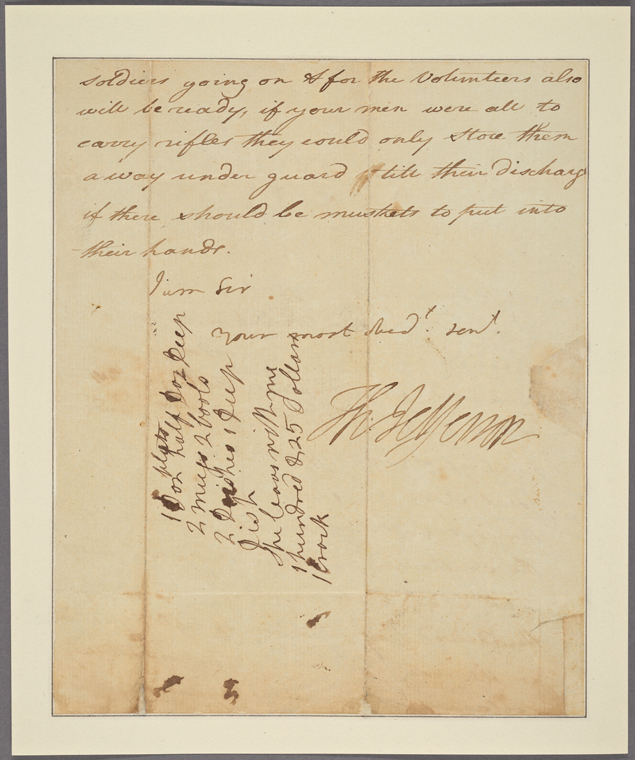 soldiers going on & for the Volunteers also
will be ready, if your men were all to
carry rifles they could only store them
away under guard till their discharge
if there should be muskets to put into
their hands.
I am Sir
Your most obedt. servt.
Th: Jefferson
1 Doz half Doz Deep
plats
2 mugs 2 bools
2 Dishes 1 Deep
Dish
She leavs with me
1 hundred & 25 Dollars
1 Crock